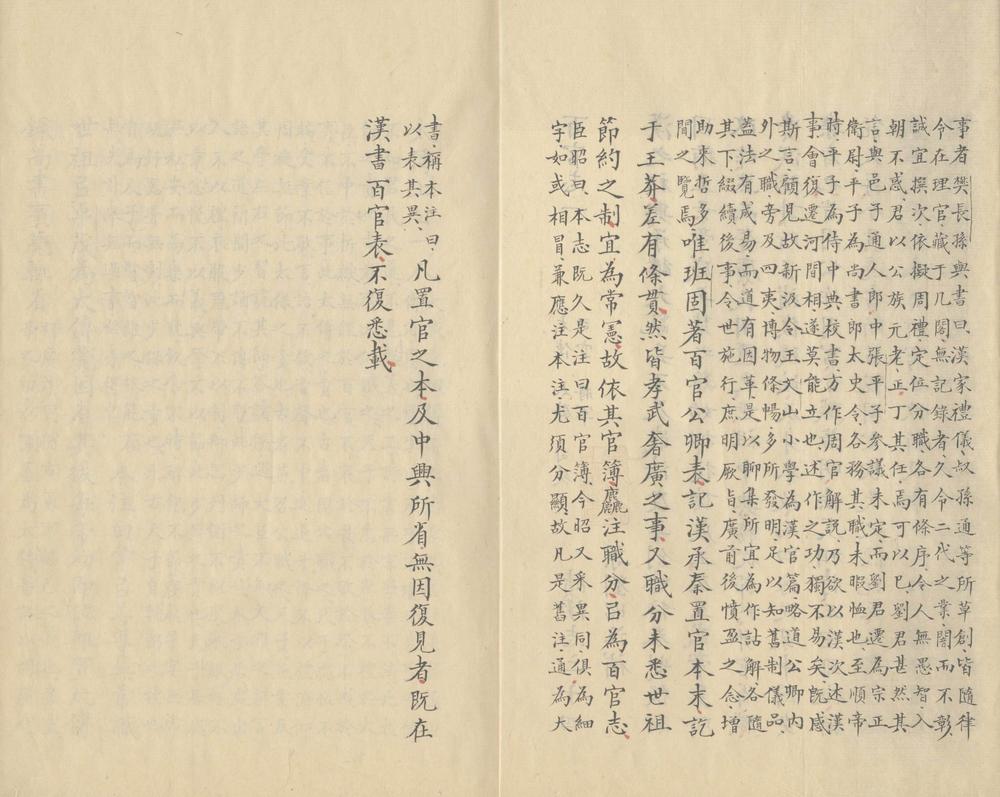 事者樊長孫與書曰漢家禮儀叔孫通等所草創皆隨律
令在理官藏于几閣無記錄者久令二代之業闇而不彰
誠宜撰次依擬周禮定位分職各有條序令人無愚智入
朝不惑君以公族元老正丁其任焉可以已劉君甚然其
言與邑子通人郎中張平子參議未定而劉君遷為宗正
衛尉平子為尚書郎太史令各務其職未暇恤也至順帝
時平子為侍中典校書方作周官解說乃欲以漢次述漢
事會復遷河間相遂莫能立也述作之功獨不易矣既感
斯言顧見故新汲令王文山小學為漢官篇略道公卿內
外之職旁及四夷博物條暢多所發明足以知舊制儀品
蓋法有成易而道有因革是以聊集所宜為作詁解各隨
其下綴續後事令世施行庶明厥旨廣前後憤盈之念增
助來哲多
聞之覽焉唯班固著百官公卿表記漢承秦置官本末訖
于王莽差有條貫然皆孝武奢廣之事又職分未悉世祖
節約之制宜為常憲故依其官簿麤注職分㠯為百官志
臣昭曰本志既久是注曰百官簿今昭又采異同俱為細
字如或相冒兼應注本注尤須分顯故凡是舊注通為大
書稱本注曰
以表其異凡置官之本及中興所省無因復見者既在
漢書百官表不復悉載